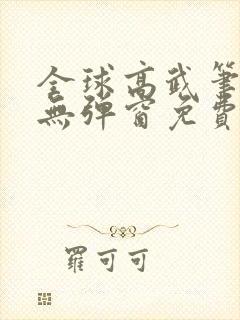 全球高武筆
無彈窗免費
羅可可